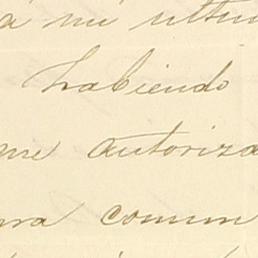 a mi ultim
habiendo
me autoriza
ra comun